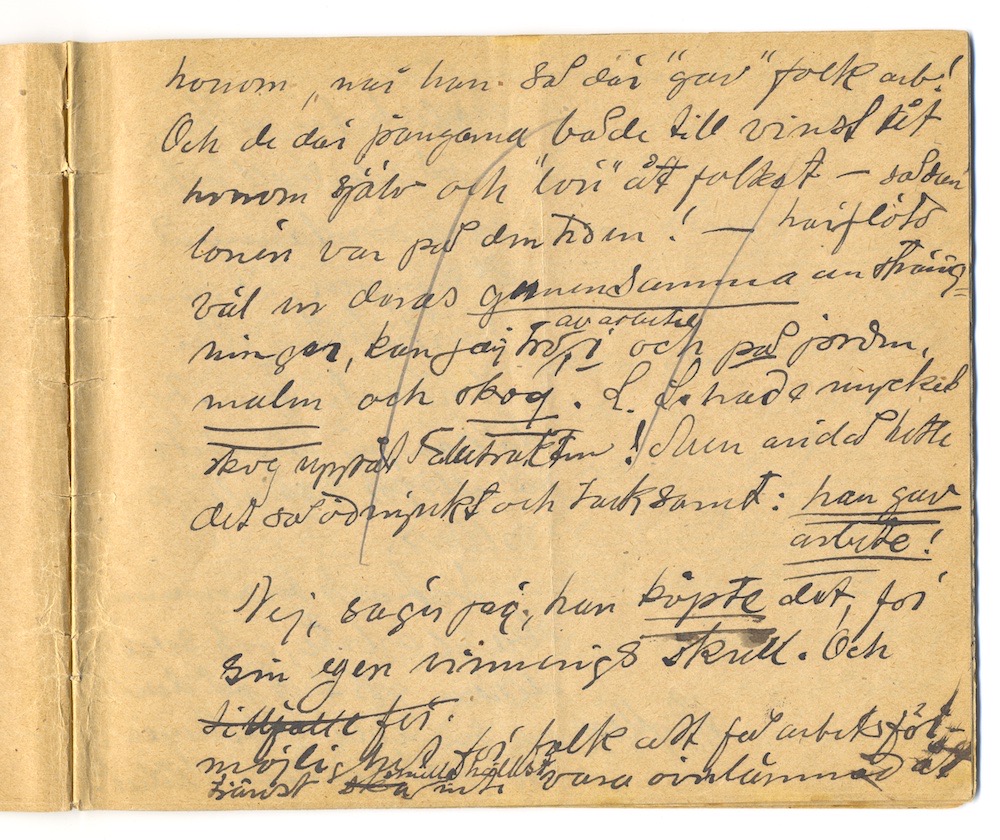 honom, när han så där "gav" folk arb.!
Och de där pängarna både till vinst åt
honom själv och "lön" åt folket – sådan
lönen var på den tiden! – härflöto
väl ur deras gemensamma ansträng-
ningar, kan jag tro, i och på jorden,
av arbete
malm och skog. L. L. hade mycket
skog uppåt trakten! Men ändå hette
det så ödmjukt och tacksamt: han gav
arbete!
Nej, säger jag, han köpte det, för
sin egen vinnings skull. Och
för.
möjlighet för folk att få arbetsför-
tjänst inte vara överlämnad åt